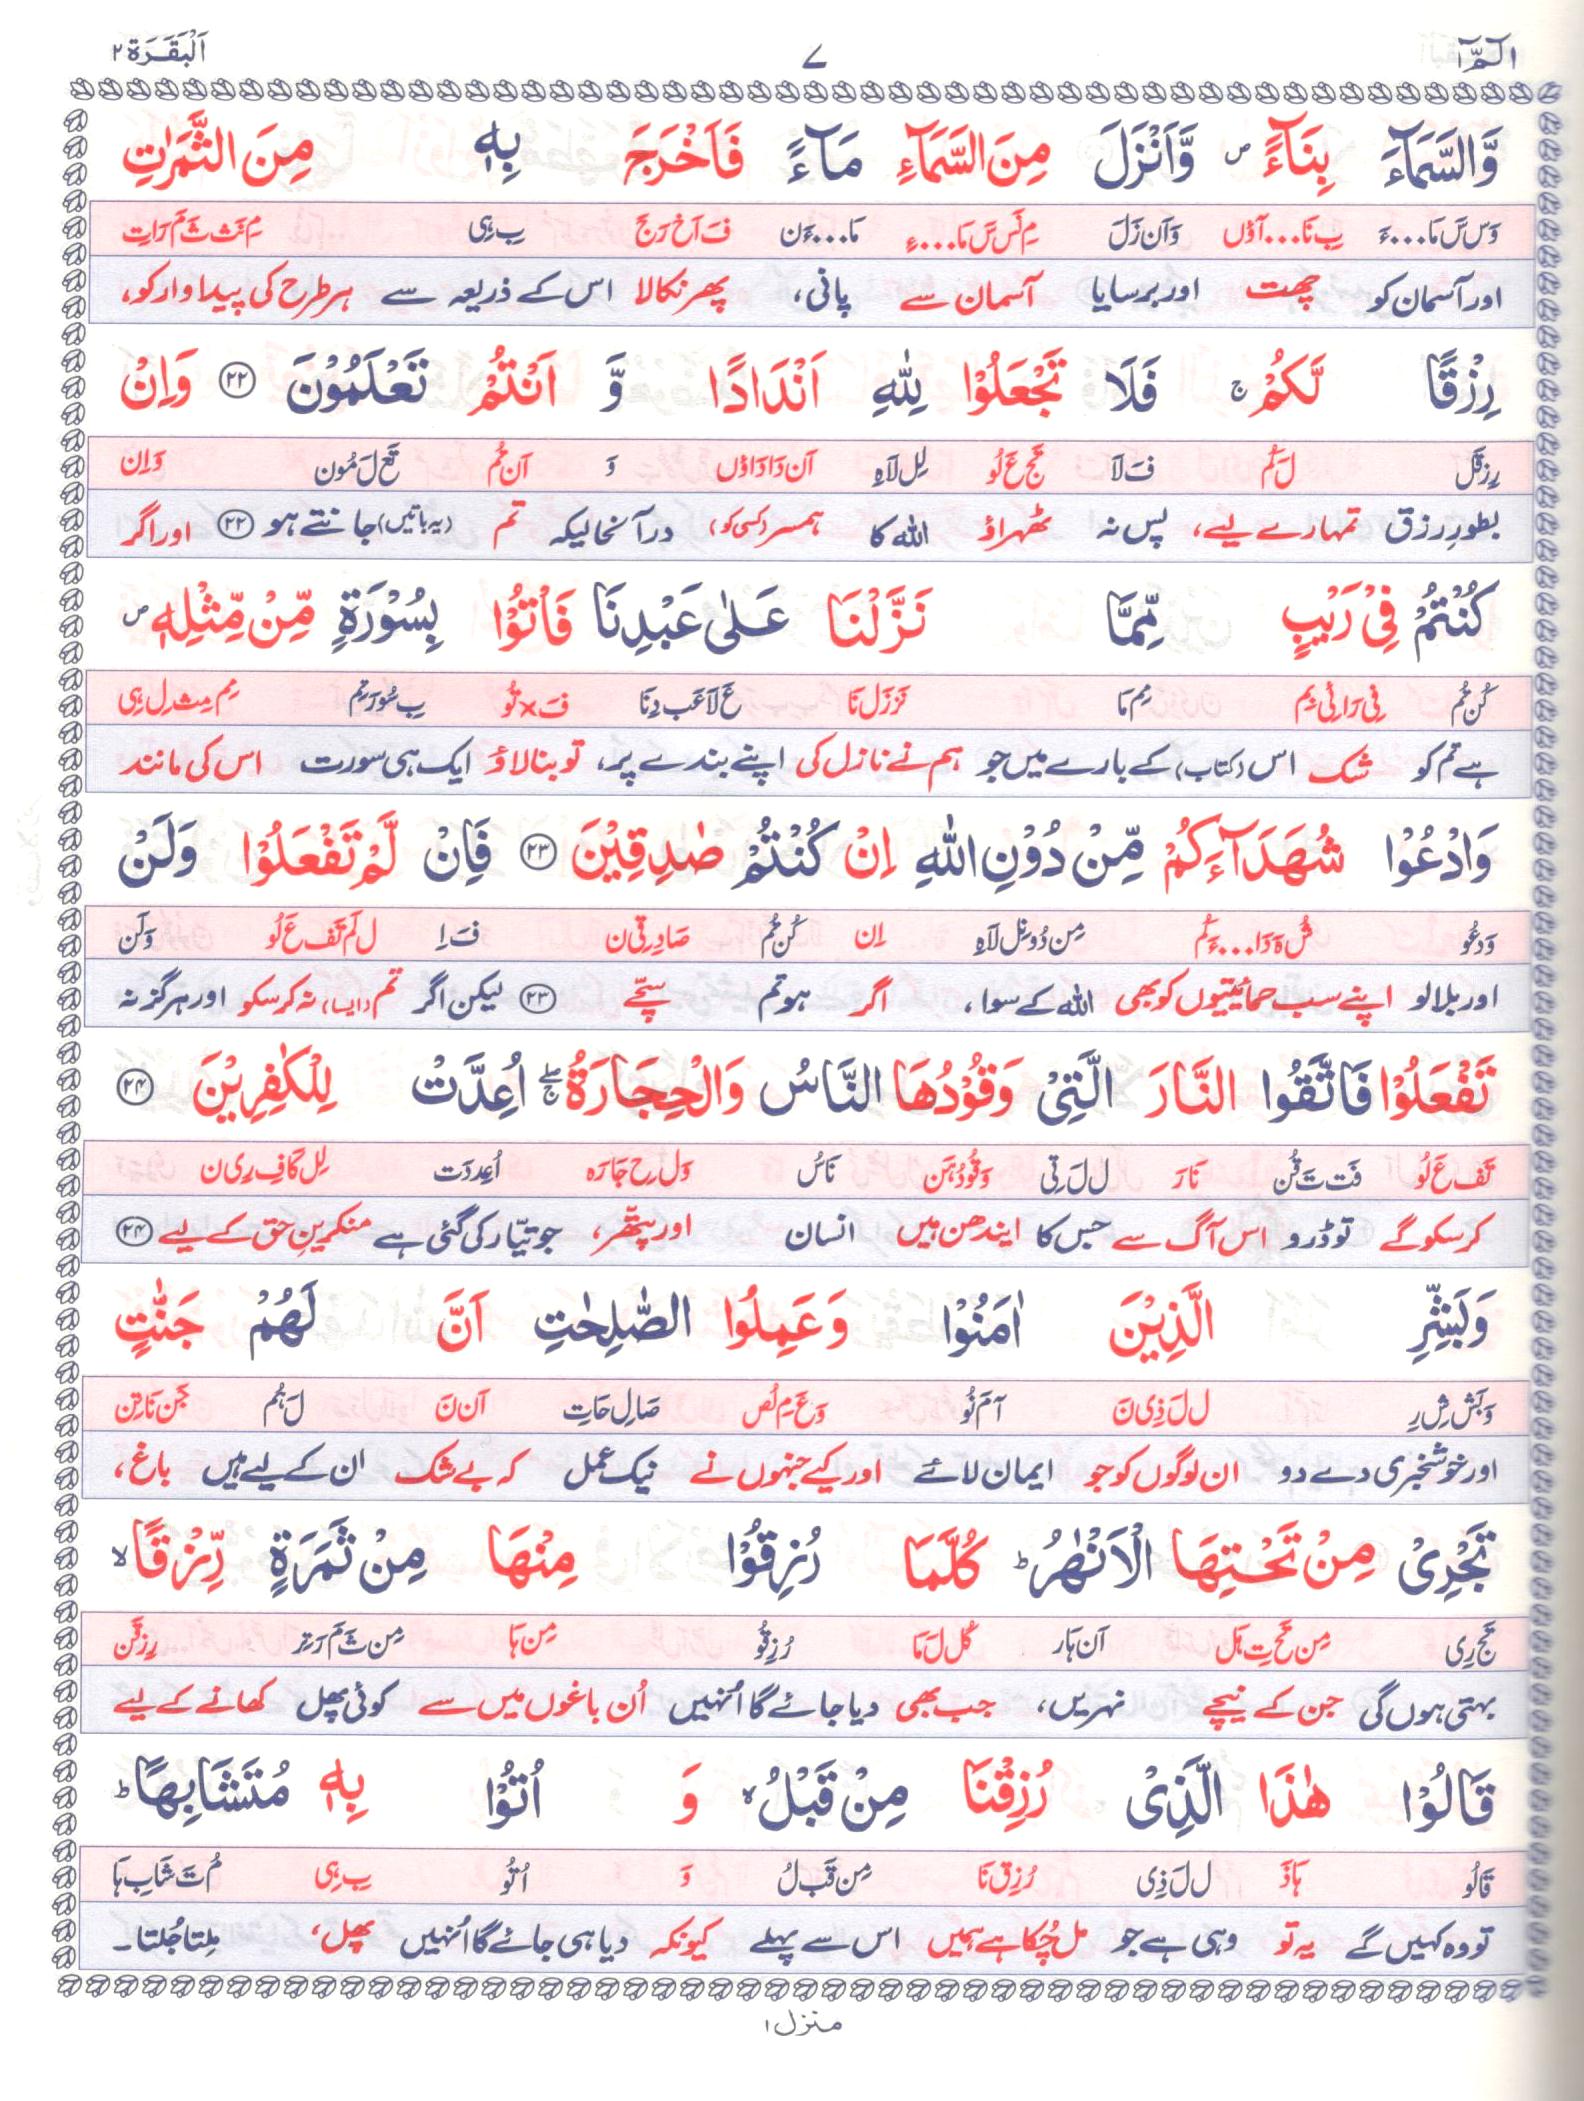 الٓمّٓ ١ ٧ اَلْبَقَرَة ٢
وَّالسَّمَآءَ بِنَآءً ص وَّاَنْزَلَ مِنَ السَّمَآءِ مَآءً فَاَخْرَجَ بِهٖ مِنَ الثَّمَرٰتِ
وَس سَ مَا...ءَ بِ نَا...آؤں وَاَن زَلَ مِ نَس سَ مَا...ءِ مَا...ءَن فَ اَخ رَجَ بِ ہِی مِ نَث ثَ مَ رَاتِ
اور آسمان کو چھت اور برسایا آسمان سے پانی، پھر نکالا اس کے ذریعہ سے ہر طرح کی پیداوار کو،
رِزْقًا لَّكُمْ ج فَلَا تَجْعَلُوْا لِلّٰهِ اَنْدَادًا وَّ اَنْتُمْ تَعْلَمُوْنَ ٢٢ وَاِنْ
رِزقَل لَ كُم فَ لَا تَج عَ لُو لِل لَاہِ اَن دَادَاؤں وَ اَن تُم تَع لَ مُون وَاِن
بطورِ رزق تمہارے لیے، پس نہ ٹھہراؤ اللہ کا ہمسر (کسی کو) درآنحالیکہ تم (یہ باتیں) جانتے ہو ٢٢ اور اگر
كُنْتُمْ فِیْ رَیْبٍ مِّمَّا نَزَّلْنَا عَلٰی عَبْدِنَا فَاْتُوْا بِسُوْرَةٍ مِّنْ مِّثْلِهٖ ص
كُن تُم فِی رَائی بِم مِم مَا نَز زَل نَا عَ لَا عَب دِنَا فَ×تُو بِ سُورَتِم مِم مِث لِ ہِی
ہے تم کو شک اس (کتاب) کے بارے میں جو ہم نے نازل کی اپنے بندے پر، تو بنا لاؤ ایک ہی سورت اس کی مانند
وَادْعُوْا شُهَدَآءَكُمْ مِّنْ دُوْنِ اللّٰهِ اِنْ كُنْتُمْ صٰدِقِیْنَ ٢٣ فَاِنْ لَّمْ تَفْعَلُوْا وَلَنْ
وَدعُو شُ ہَ دَا...ءَكُم مِن دُونِل لَاہِ اِن كُن تُم صَادِقِی ن فَ اِ ل لَم تَف عَ لُو وَلَن
اور بلالو اپنے سب حمائیتیوں کو بھی اللہ کے سوا، اگر ہو تم سچّے ٢٣ لیکن اگر تم (ایسا) نہ کرسکو اور ہرگز نہ
تَفْعَلُوْا فَاتَّقُوا النَّارَ الَّتِیْ وَقُوْدُهَا النَّاسُ وَالْحِجَارَةُ صلے ج اُعِدَّتْ لِلْكٰفِرِیْنَ ٢٤
تَف عَ لُو فَت تَ قُن نَارَ ل لَ تِی وَقُودُہَن نَاسُ وَل حِ جَارَہ اُعِد دَت لِل كَافِ رِی ن
کرسکو گے تو ڈرو اس آگ سے جس کا ایندھن ہیں انسان اور پتّھر، جو تیّار کی گئی ہے منکرینِ حق کے لیے ٢٤
وَبَشِّرِ الَّذِیْنَ اٰمَنُوْا وَعَمِلُوا الصّٰلِحٰتِ اَنَّ لَهُمْ جَنّٰتٍ
وَبَش شِ رِ ل لَ ذِی نَ آمَ نُو وَعَ مِ لُص صَالِ حَاتِ اَن نَ لَ ہُم جَن نَاتِن
اور خوشخبری دے دو ان لوگوں کو جو ایمان لائے اور کیے جنہوں نے نیک عمل کہ بے شک ان کے لیے ہیں باغ،
تَجْرِیْ مِنْ تَحْتِهَا الْاَنْهٰرُ ط كُلَّمَا رُزِقُوْا مِنْهَا مِنْ ثَمَرَةٍ رِّزْقًا لا
تَج رِی مِن تَح تِ ہَل اَن ہَار كُل لَ مَا رُزِقُو مِن ہَا مِن ثَ مَ رَتِر رِزقَن
بہتی ہوں گی جن کے نیچے نہریں، جب بھی دیا جائے گا اُنہیں اُن باغوں میں سے کوئی پھل کھانے کے لیے
قَالُوْا هٰذَا الَّذِیْ رُزِقْنَا مِنْ قَبْلُ لا وَ اُتُوْا بِهٖ مُتَشَابِهًا ط
قَالُو ہَاذَ ل لَ ذِی رُزِق نَا مِن قَب لُ وَ اُتُو بِ ہِی مُ تَ شَابِ ہَا
تو وہ کہیں گے یہ تو وہی ہے جو مل چُکا ہے ہمیں اس سے پہلے کیونکہ دیا ہی جائے گا اُنہیں پھل، مِلتا جُلتا۔
منزل ۱